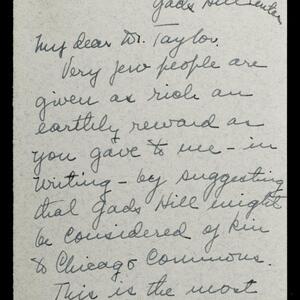 Gads Hill Center
My dear Dr. Taylor.
Very few people are
given as rich an
earthly reward as
you gave to me - in
writing - by suggesting
that Gads Hill might
be considered of kin
to Chicago Commons.
This is the most